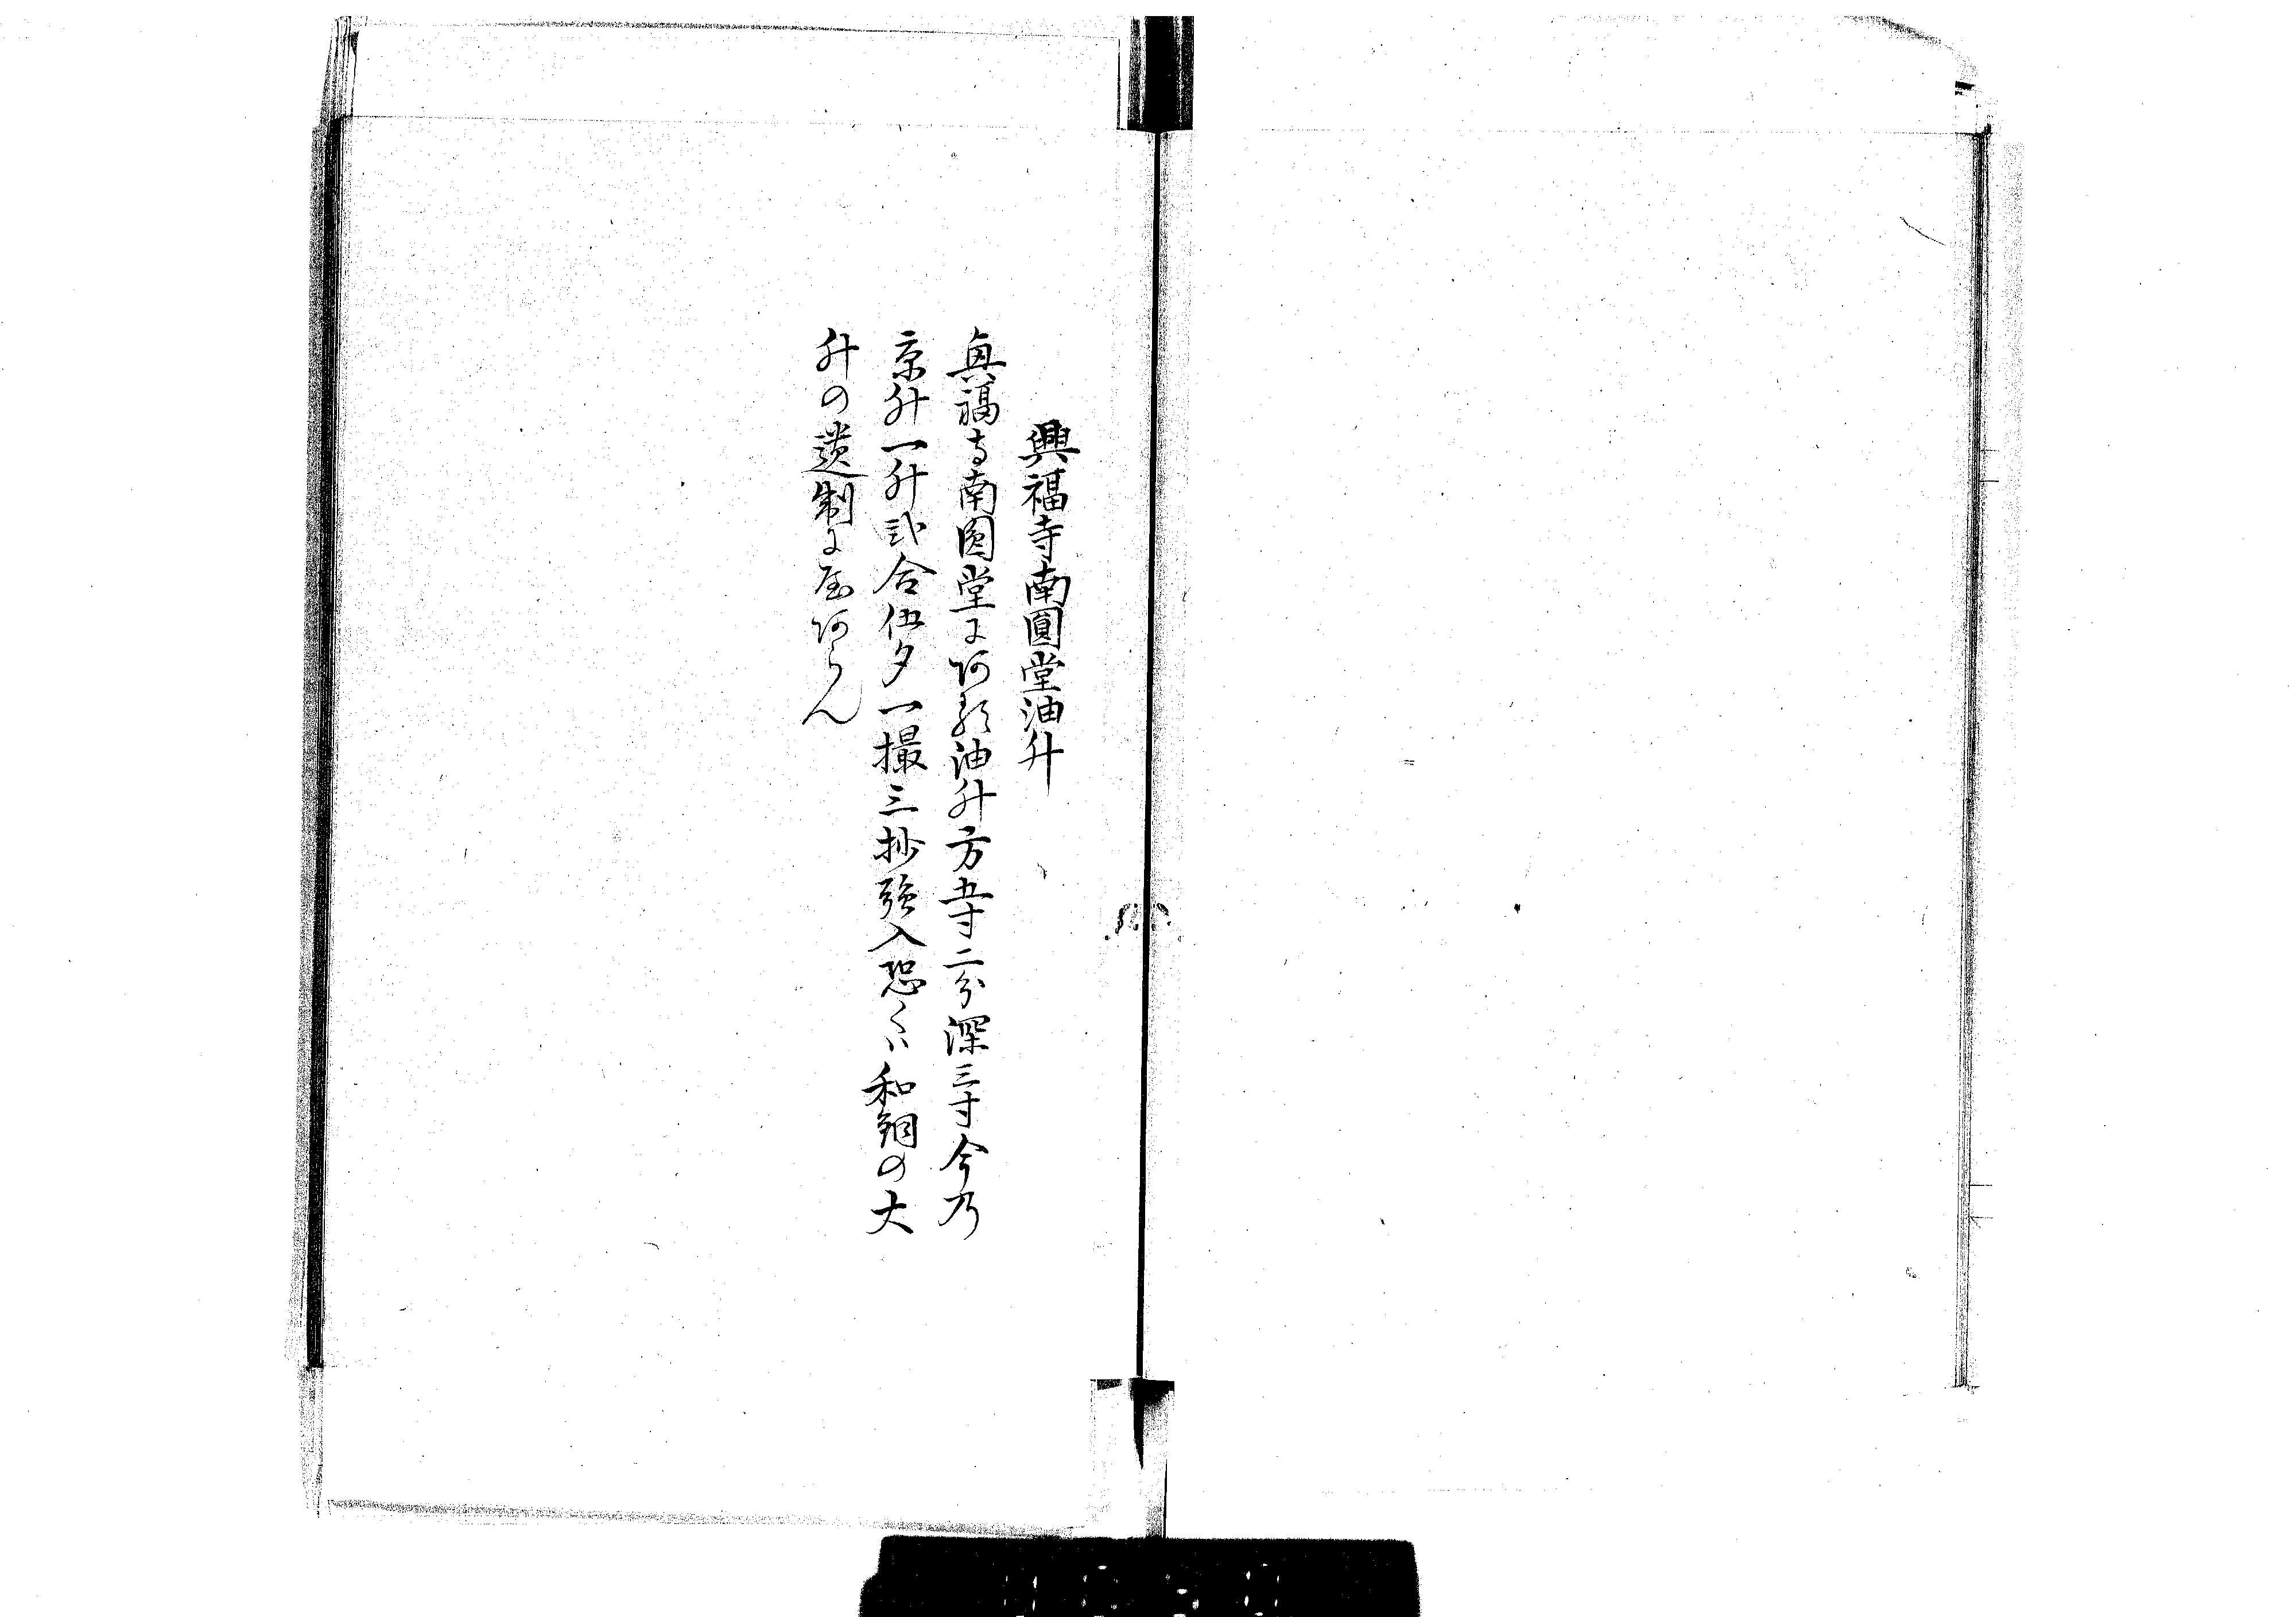 興福寺南圓堂油升
興福寺南圓堂にある油升方五寸二分深三寸今乃
京升一升貮合伍夕一撮三抄強入恐くハ和銅の大
升の遺制にやあらん